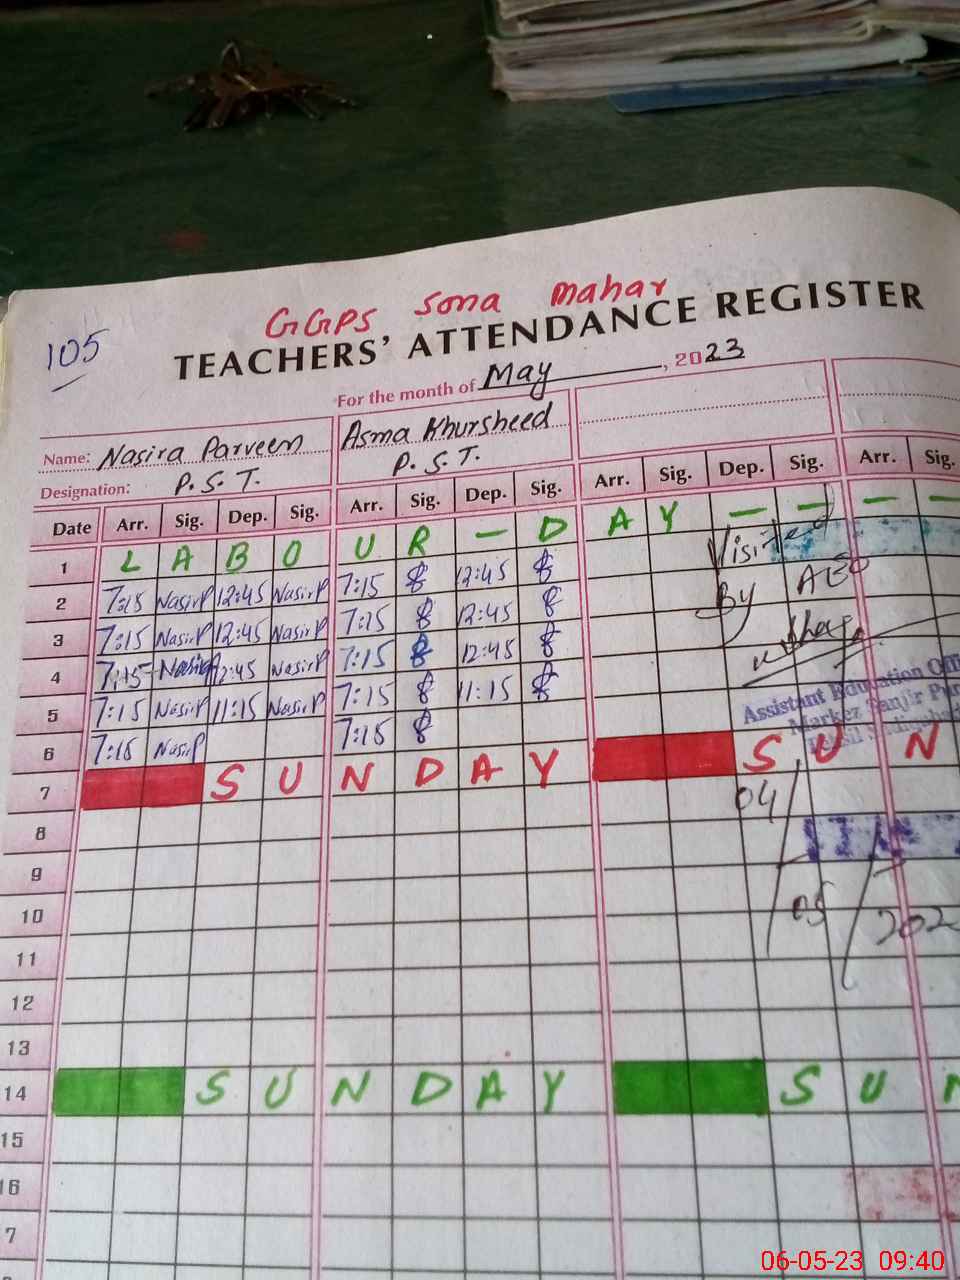 GGPS Sona mahar
105
TEACHERS' ATTENDANCE REGISTER
For the month of May, 2023
Name: Nasira Parveen Asma Khursheed
Designation: P.S.T. P.S.T.
Date Arr. Sig. Dep. Sig. Arr. Sig. Dep. Sig. Arr. Sig. Dep. Sig. Arr. Sig.
1 L A B O U R — D A Y — — — —
2 7:15 NasirP 12:45 NasirP 7:15 12:45
3 7:15 NasirP 12:45 NasirP 7:15 12:45
4 7:15 NasirP 12:45 NasirP 7:15 12:45
5 7:15 NasirP 11:15 NasirP 7:15 11:15
6 7:15 NasirP 7:15
7 S U N D A Y S U N
8
9
10
11
12
13
14 S U N D A Y S U N
15
16
7
Visited
By AEO
Assistant Education Offi
Markez
04/05/202
06-05-23 09:40